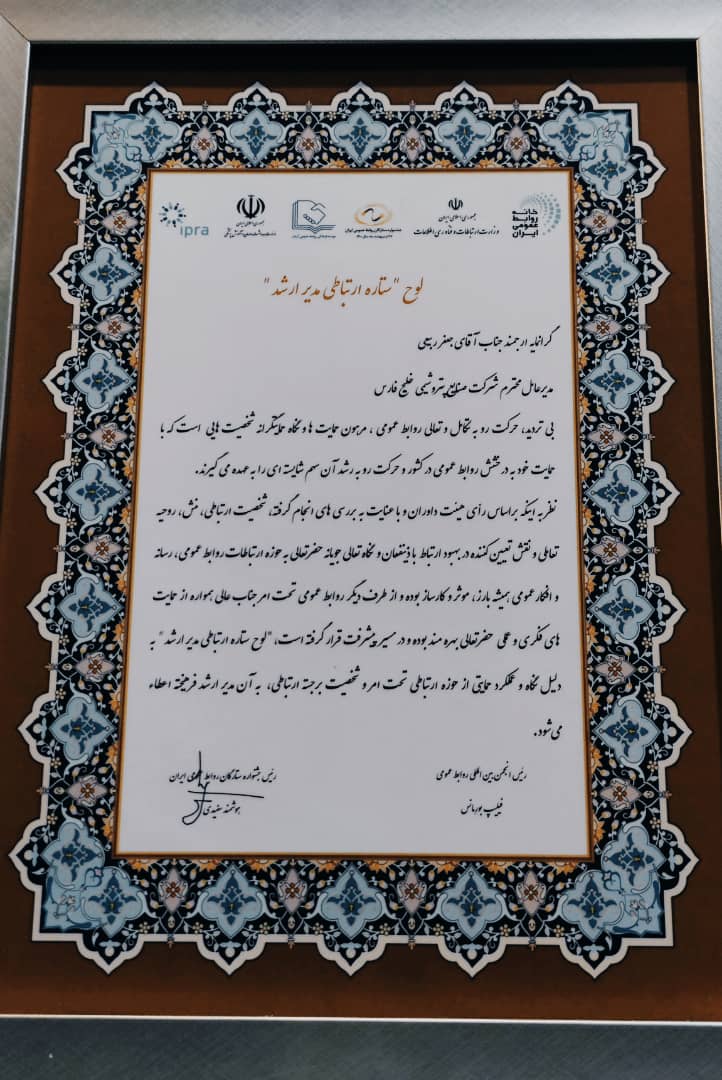 خانه روابط عمومی ایران
جمهوری اسلامی ایران
وزارت ارتباطات و فناوری اطلاعات
جمهوری اسلامی ایران
ipra
لوح "ستاره ارتباطی مدیر ارشد"
گرانمایه ارجمند جناب آقای جعفر ربیعی
مدیرعامل محترم شرکت صنایع پتروشیمی خلیج فارس
بی تردید، حرکت رو به تکامل و تعالی روابط عمومی ، مرهون حمایت ها و نگاه حمایتگرانه شخصیت هایی است که با
حمایت خود به درخشش روابط عمومی در کشور و حرکت رو به رشد آن سهم شایسته ای را به عهده می گیرند.
نظر به اینکه براساس رأی هیئت داوران و با عنایت به بررسی های انجام گرفته، شخصیت ارتباطی، منش، روحیه
تعاملی و نقش تعیین کننده در بهبود ارتباط با ذینفعان و نگاه تعالی جویانه حضرتعالی به حوزه ارتباطات روابط عمومی، رسانه
و افکار عمومی همیشه بارز، موثر و کارساز بوده و از طرف دیگر روابط عمومی تحت امر جناب عالی همواره از حمایت
های فکری و عملی حضرتعالی بهره مند بوده و در مسیر پیشرفت قرار گرفته است، "لوح ستاره ارتباطی مدیر ارشد" به
دلیل نگاه و عملکرد حمایتی از حوزه ارتباطی تحت امر و شخصیت برجسته ارتباطی، به آن مدیر ارشد فرهیخته اعطاء
می شود.
رئیس انجمن بین المللی روابط عمومی
فیلیپ بورمانس
رئیس جشنواره ستارگان روابط عمومی ایران
هوشمند سفیدی